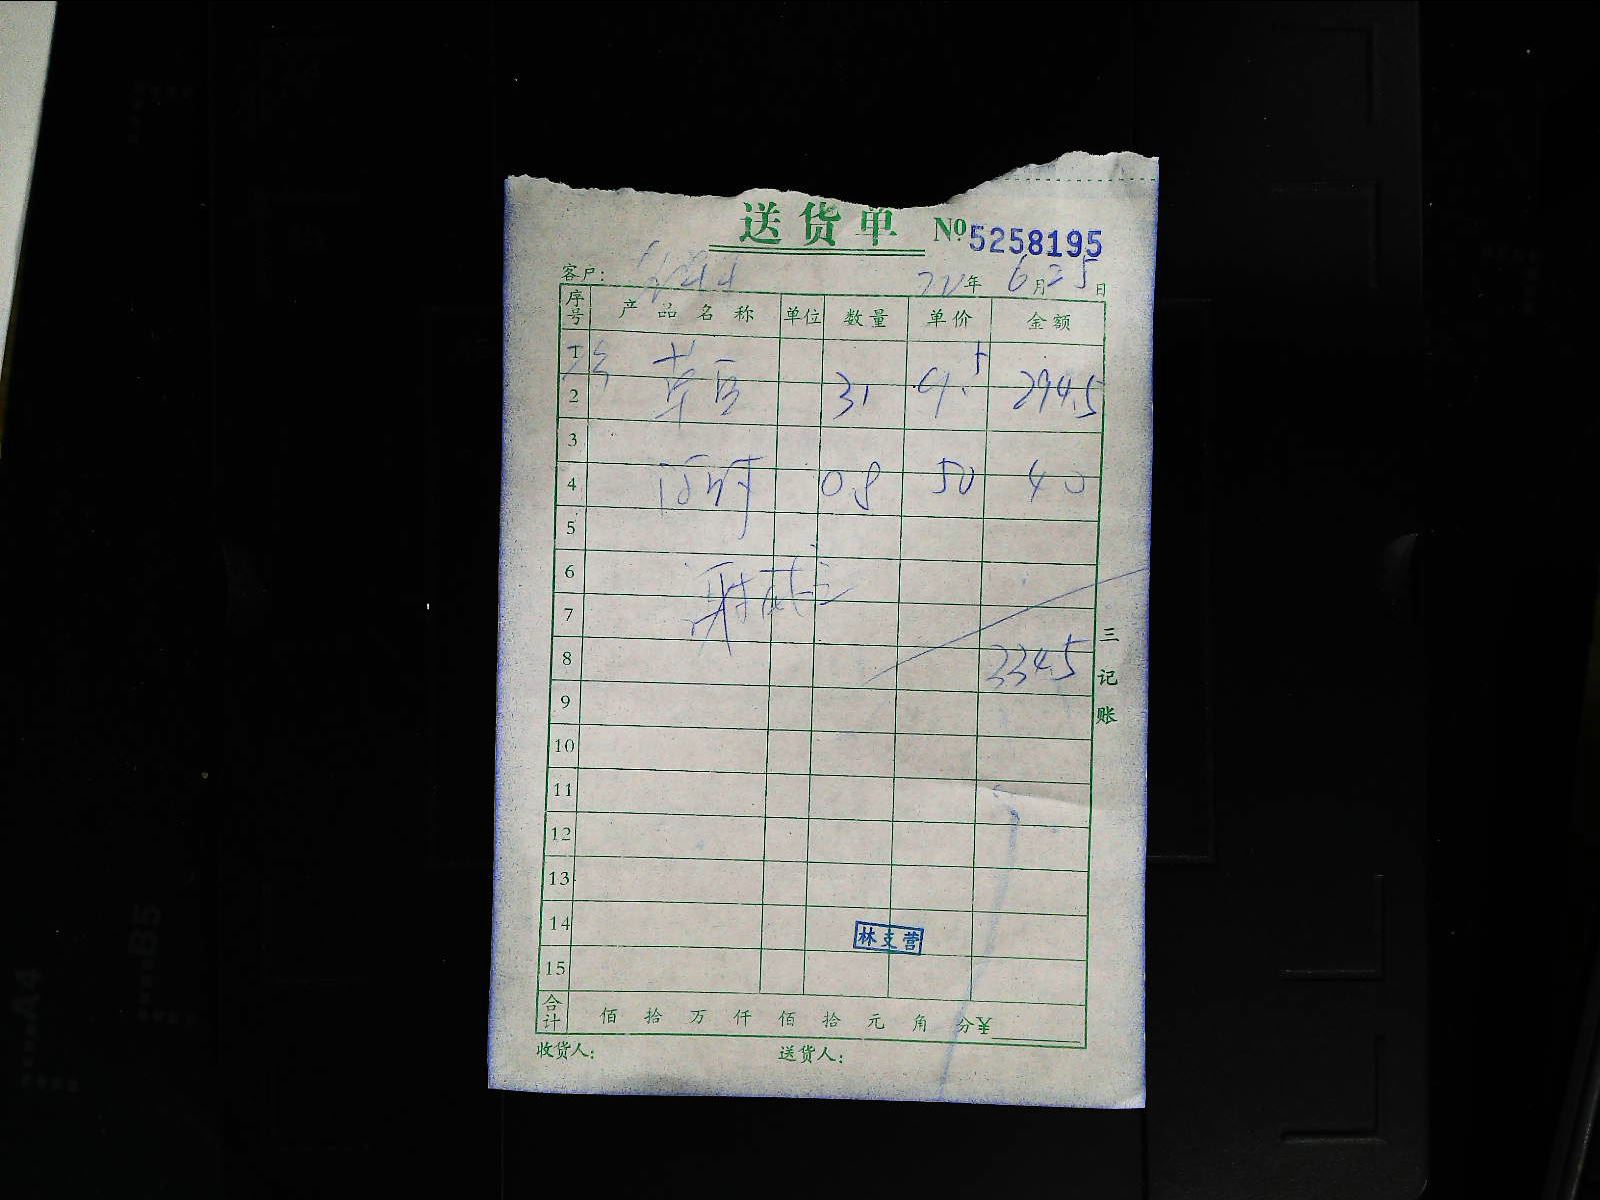 送货单 №5258195
客户: 22年6月25日
序号 产品名称 单位 数量 单价 金额
1
2 31 9.5 294.5
3
4 08 50 40
5
6
7
8 334.5
9
10
11
12
13
14 林支营
15
合计 佰 拾 万 仟 佰 拾 元 角 分¥
收货人: 送货人:
三记账